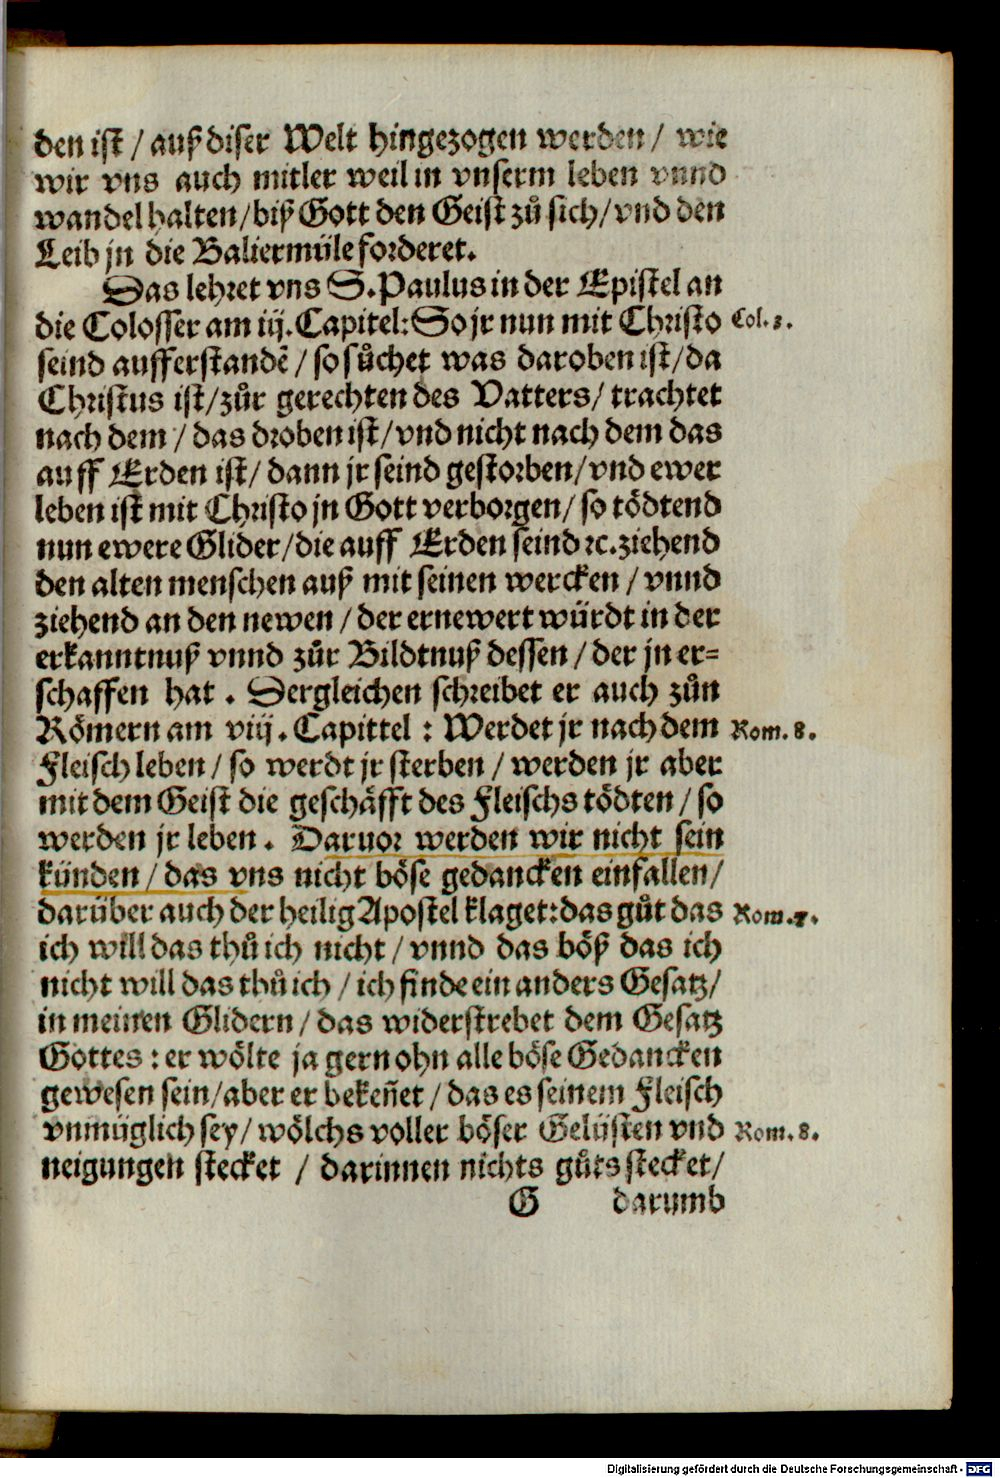 den ist / auß diser Welt hingezogen werden / wie
wir vns auch mitler weil in vnserm leben vnnd
wandel halten / biß Gott den Geist zů sich / vnd den
Leib jn die Baliermüle forderet.
Das lehret vns S. Paulus in der Epistel an
die Colosser am iij. Capitel: So jr nun mit Christo Col. 3.
seind aufferstandẽ / so sůchet was daroben ist / da
Christus ist / zůr gerechten des Vatters / trachtet
nach dem / das droben ist / vnd nicht nach dem das
auff Erden ist / dann jr seind gestorben / vnd ewer
leben ist mit Christo jn Gott verborgen / so tödtend
nun ewere Glider / die auff Erden seind ꝛc. ziehend
den alten menschen auß mit seinen wercken / vnnd
ziehend an den newen / der ernewert würdt in der
erkanntnuß vnnd zůr Bildtnuß dessen / der jn er=
schaffen hat. Dergleichen schreibet er auch zůn
Römern am viij. Capittel: Werdet jr nach dem Rom. 8.
Fleisch leben / so werdt jr sterben / werden jr aber
mit dem Geist die geschäfft des Fleischs tödten / so
werden jr leben. Daruor werden wir nicht sein
künden / das vns nicht böse gedancken einfallen /
darüber auch der heilig Apostel klaget: das gůt das Rom. 7.
ich will das thů ich nicht / vnnd das böß das ich
nicht will das thů ich / ich finde ein anders Gesatz /
in meinen Glidern / das widerstrebet dem Gesatz
Gottes: er wölte ja gern ohn alle böse Gedancken
gewesen sein / aber er bekeñet / das es seinem Fleisch
vnmüglich sey / wölchs voller böser Gelüsten vnd Rom. 8.
neigungen stecket / darinnen nichts gůts stecket /
G darumb
Digitalisierung gefördert durch die Deutsche Forschungsgemeinschaft - DFG